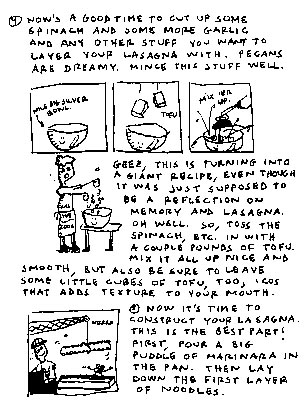 ④ NOW'S A GOOD TIME TO CUT UP SOME
SPINACH AND SOME MORE GARLIC
AND ANY OTHER STUFF YOU WANT TO
LAYER YOUR LASAGNA WITH. PECANS
ARE DREAMY. MINCE THIS STUFF WELL.
BIG SILVER
BOWL.
TOFU
MIX 'ER
UP!
GEEZ, THIS IS TURNING INTO
A GIANT RECIPE, EVEN THOUGH
IT WAS JUST SUPPOSED TO
BE A REFLECTION ON
MEMORY AND LASAGNA.
OH WELL. SO, TOSS THE
SPINACH, ETC. IN WITH
A COUPLE POUNDS OF TOFU.
MIX IT ALL UP NICE AND
SMOOTH, BUT ALSO BE SURE TO LEAVE
SOME LITTLE CUBES OF TOFU, TOO, 'COS
THAT ADDS TEXTURE TO YOUR MOUTH.
NOW IT'S TIME TO
CONSTRUCT YOUR LASAGNA.
THIS IS THE BEST PART!
FIRST, POUR A BIG
PUDDLE OF MARINARA IN
THE PAN. THEN LAY
DOWN THE FIRST LAYER
OF NOODLES.